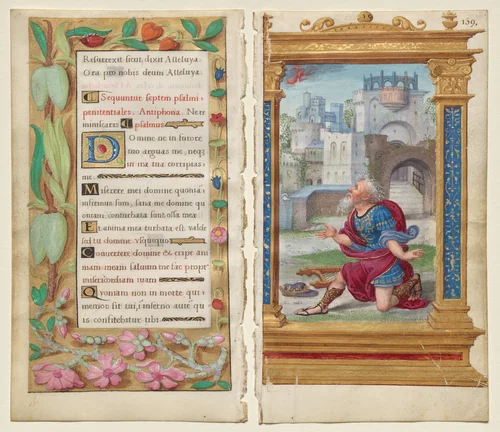 Resurrexit sicut dixit Alleluya.
Ora pro nobis deum Alleluya.
Sequuntur septem psalmi
penitentiales. Antiphona. Ne re
miniscaris Psalmus
Domine ne in furore
tuo arguas me, neqз
in ira tua corripias
me.
Miserere mei domine quonia
infirmus sum, sana me domine qu
oniam conturbata sunt ossa mea
Et anima mea turbata est valde
sed tu domine usquequo
Convertere domine & eripe ani
mam meam salvum me fac propt
misericordiam tuam
Quoniam non in morte qui
memor sit tui, inferno aute qu
is confitebitur tibi
159.